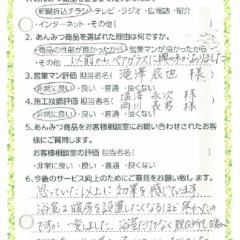 ・新聞折込チラシ・テレビ・ラジオ・広報誌・紹介
・インターネット・その他(
2.あんみつ商品を選ばれた理由は何ですか。
・商品の性能が良かったから・営業マンが良かったから
・その他(以前からペアガラスに興味がありました)
3.営業マン評価 担当者名( 滝澤 辰也 様 )
・非常に良い ・良い ・普通 ・良くない
4.施工技師評価 担当者名( 永次 様
前川 長男 様 )
・非常に良い ・良い ・普通 ・良くない
5.あんみつ商品をお客様相談室にお問い合わせされたお客
様にご質問します。
お客様相談室の評価 担当者名(
・非常に良い ・良い ・普通 ・良くない
6.今後のサービス向上のためにご意見をお願い致します。
思っていた以上に効果を感じています
浴室は暖房を設置したくなるほど寒かったの
ですが、一変しました。浴室だけでなく